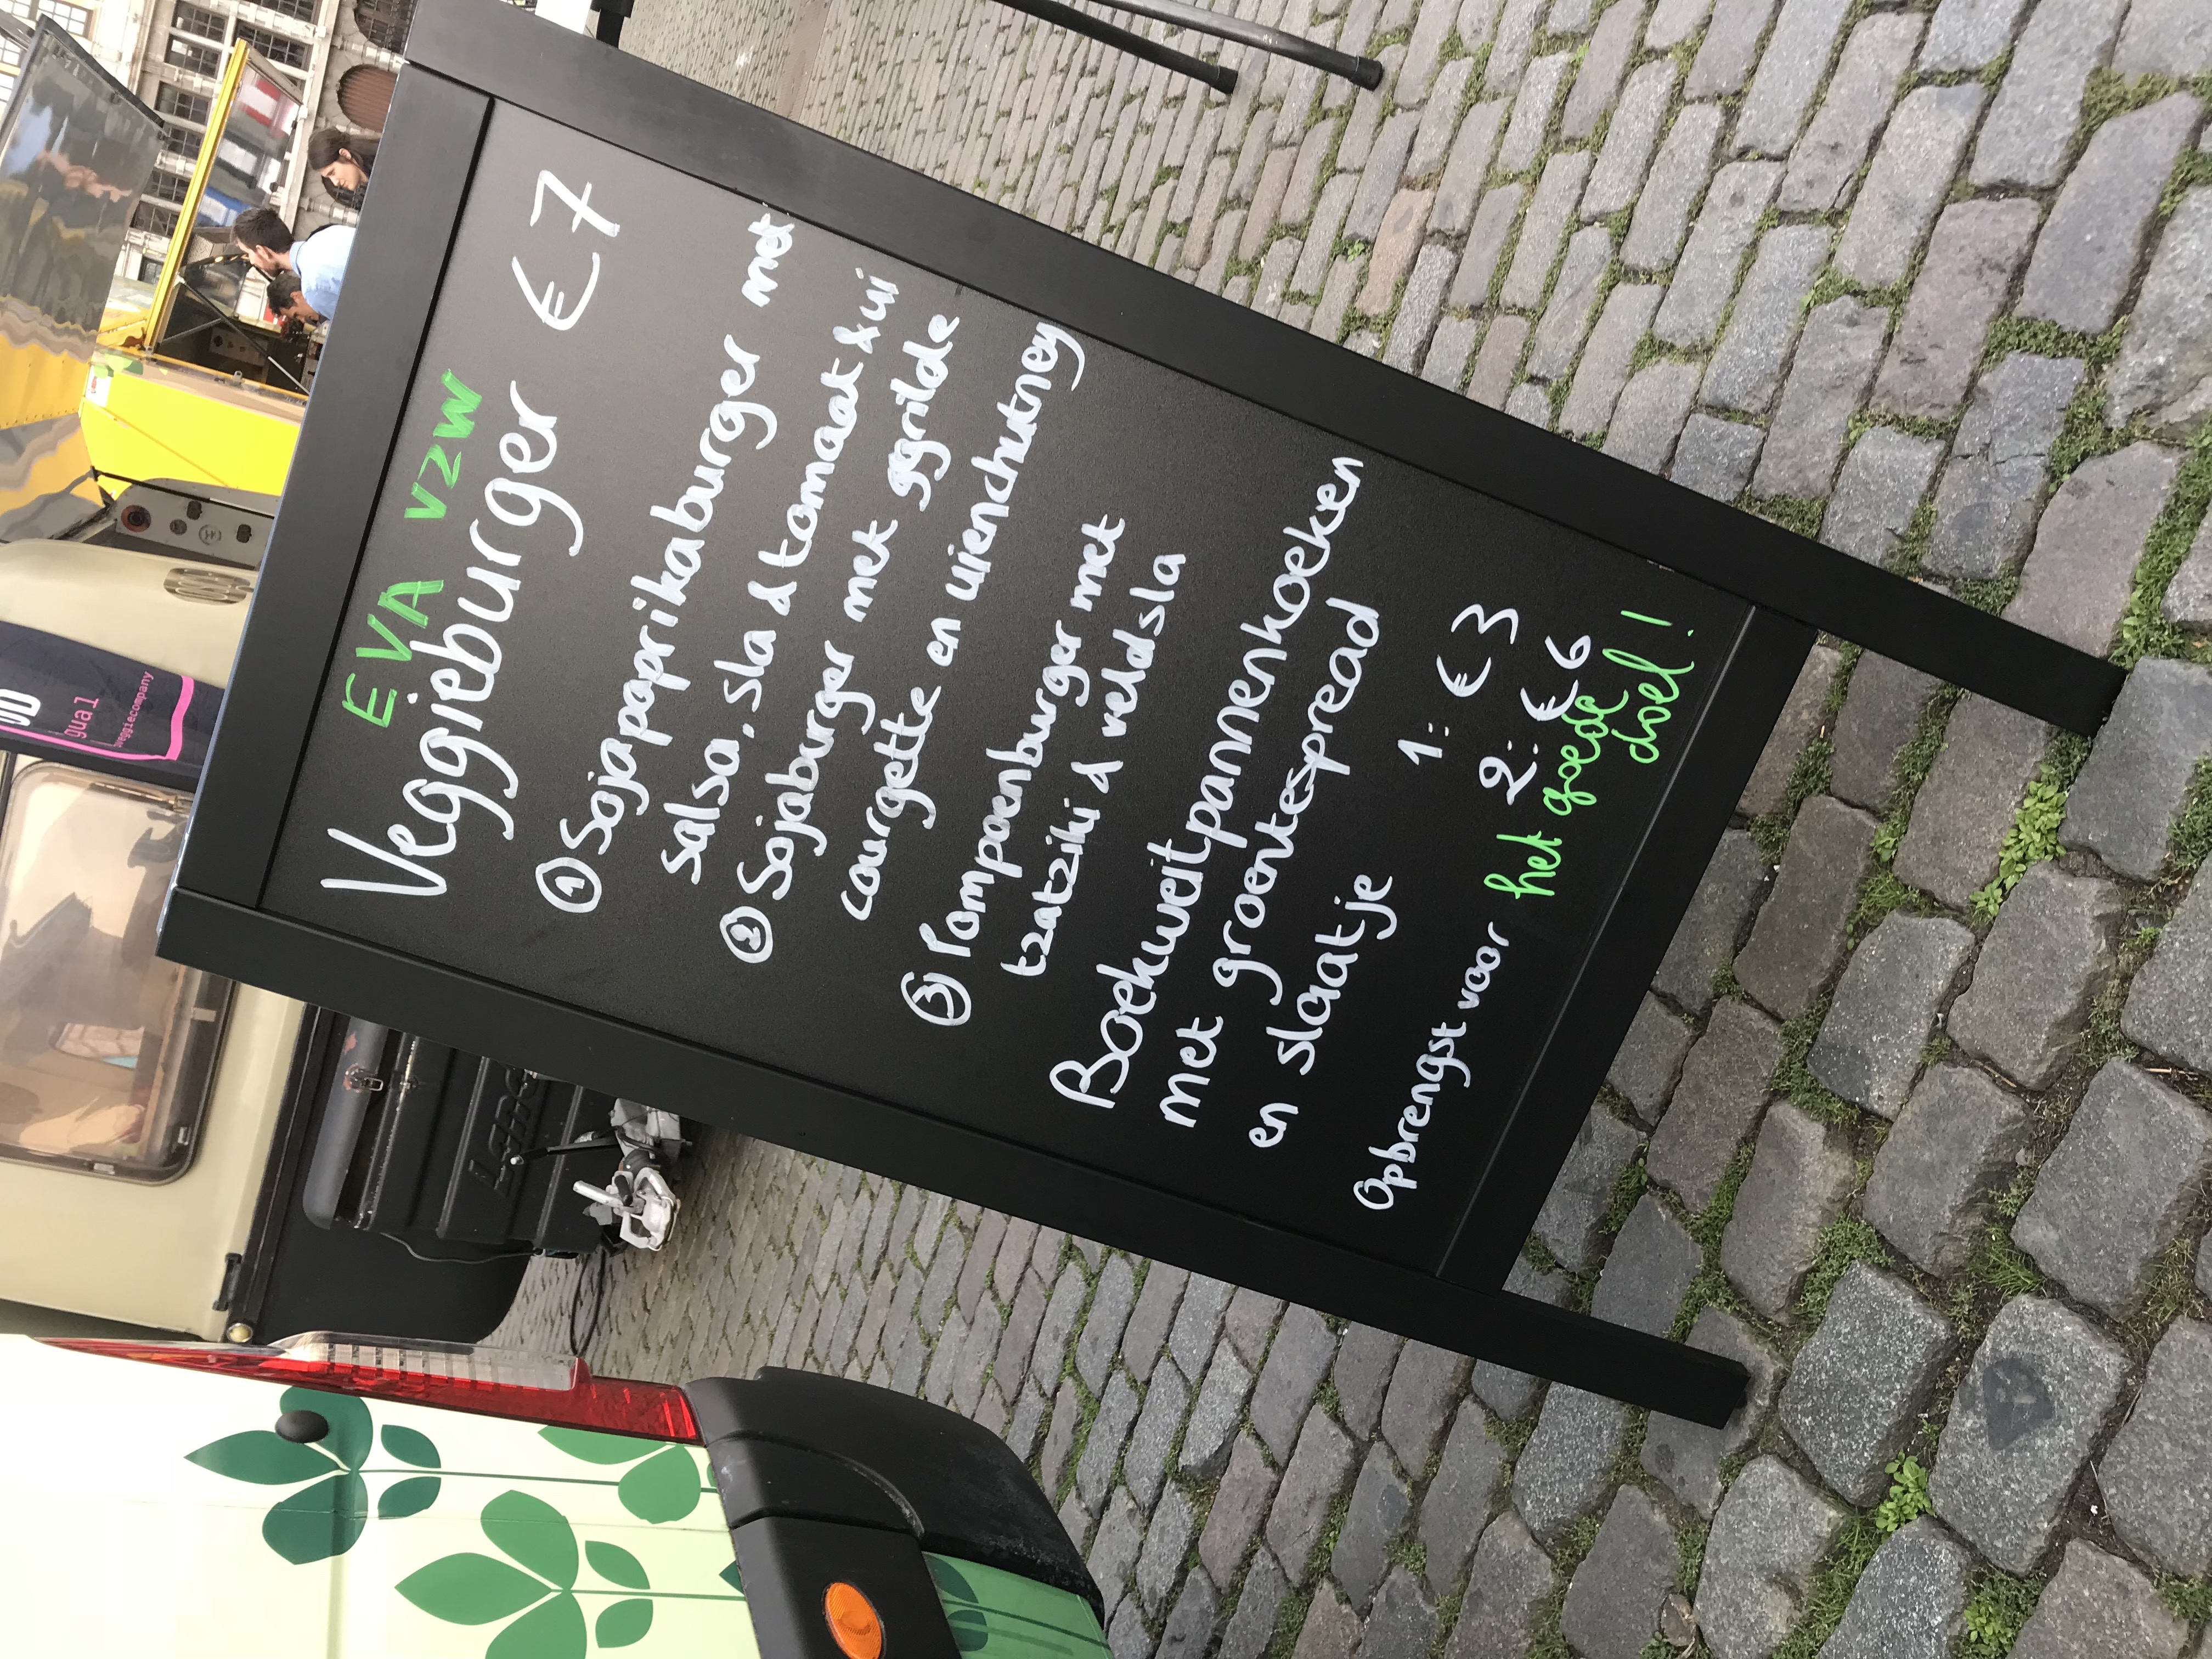 EVA VZW
Veggieburger €7
① Sojapaprikaburger met
salsa, sla & tomaat & ui
② Sojaburger met ggrilde
courgette en uienchutney
③ Pompoenburger met
tzatziki & veldsla
Boekweitpannenkoeken
met groentespread
en slaatje
1: € 3
2: € 6
Opbrengst voor het goede
doel!
gual
veggiecompany